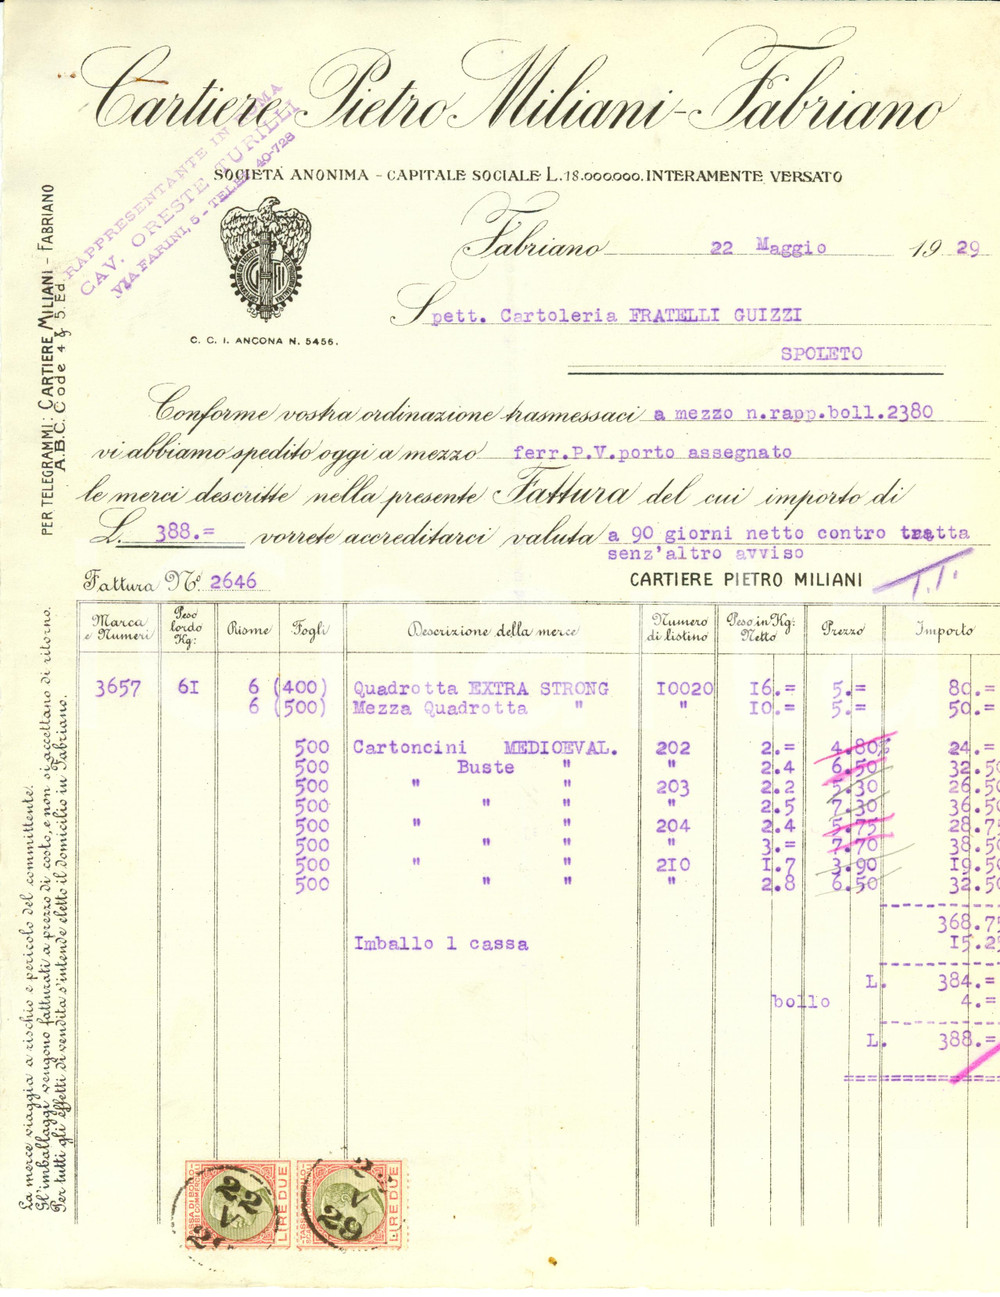 Cartiere Pietro Miliani-Fabriano
SOCIETÀ ANONIMA - CAPITALE SOCIALE L.18.000.000.INTERAMENTE VERSATO
RAPPRESENTANTE IN ROMA
CAV. ORESTE TURILLI
VIA FARINI, 5 - TELEF. 40-728
PER TELEGRAMMI: CARTIERE MILIANI - FABRIANO
A.B.C. Code 4 & 5. Ed.
C. C. I. ANCONA N. 5456.
Fabriano 22 Maggio 1929
Spett. Cartoleria FRATELLI GUIZZI
SPOLETO
Conforme vostra ordinazione trasmessaci a mezzo n.rapp.boll.2380
vi abbiamo spedito oggi a mezzo ferr.P.V.porto assegnato
le merci descritte nella presente Fattura del cui importo di
L. 388.= vorrete accreditarci valuta a 90 giorni netto contro tratta
senz'altro avviso
Fattura Nº. 2646 CARTIERE PIETRO MILIANI T.T.
Marca e Numeri Peso lordo Kg: Risme Fogli Descrizione della merce Numero di listino Peso in Kg: Netto Prezzo Importo
3657 61 6 (400) Quadrotta EXTRA STRONG 10020 16.= 5.= 80.=
6 (500) Mezza Quadrotta " " 10.= 5.= 50.=
500 Cartoncini MEDIOEVAL. 202 2.= 4.80% 24.=
500 Buste " " 2.4 6.50 32.50
500 " " 203 2.2 5.30 26.50
500 " " " 2.5 7.30 36.50
500 " " 204 2.4 5.75 28.75
500 " " " 3.= 7.70 38.50
500 " " 210 1.7 3.90 19.50
500 " " " 2.8 6.50 32.50
368.75
Imballo 1 cassa 15.25
L. 384.=
bollo 4.=
L. 388.=
La merce viaggia a rischio e pericolo del committente.
Gl'imballaggi vengono fatturati a prezzo di costo, e non si accettano di ritorno.
Per tutti gli effetti di vendita s'intende eletto il domicilio in Fabriano.
TASSA DI BOLLO
SCAMBI COMMERCIALI
LIRE DUE
22
V
29
TASSA DI BOLLO
SCAMBI COMMERCIALI
LIRE DUE
V
29